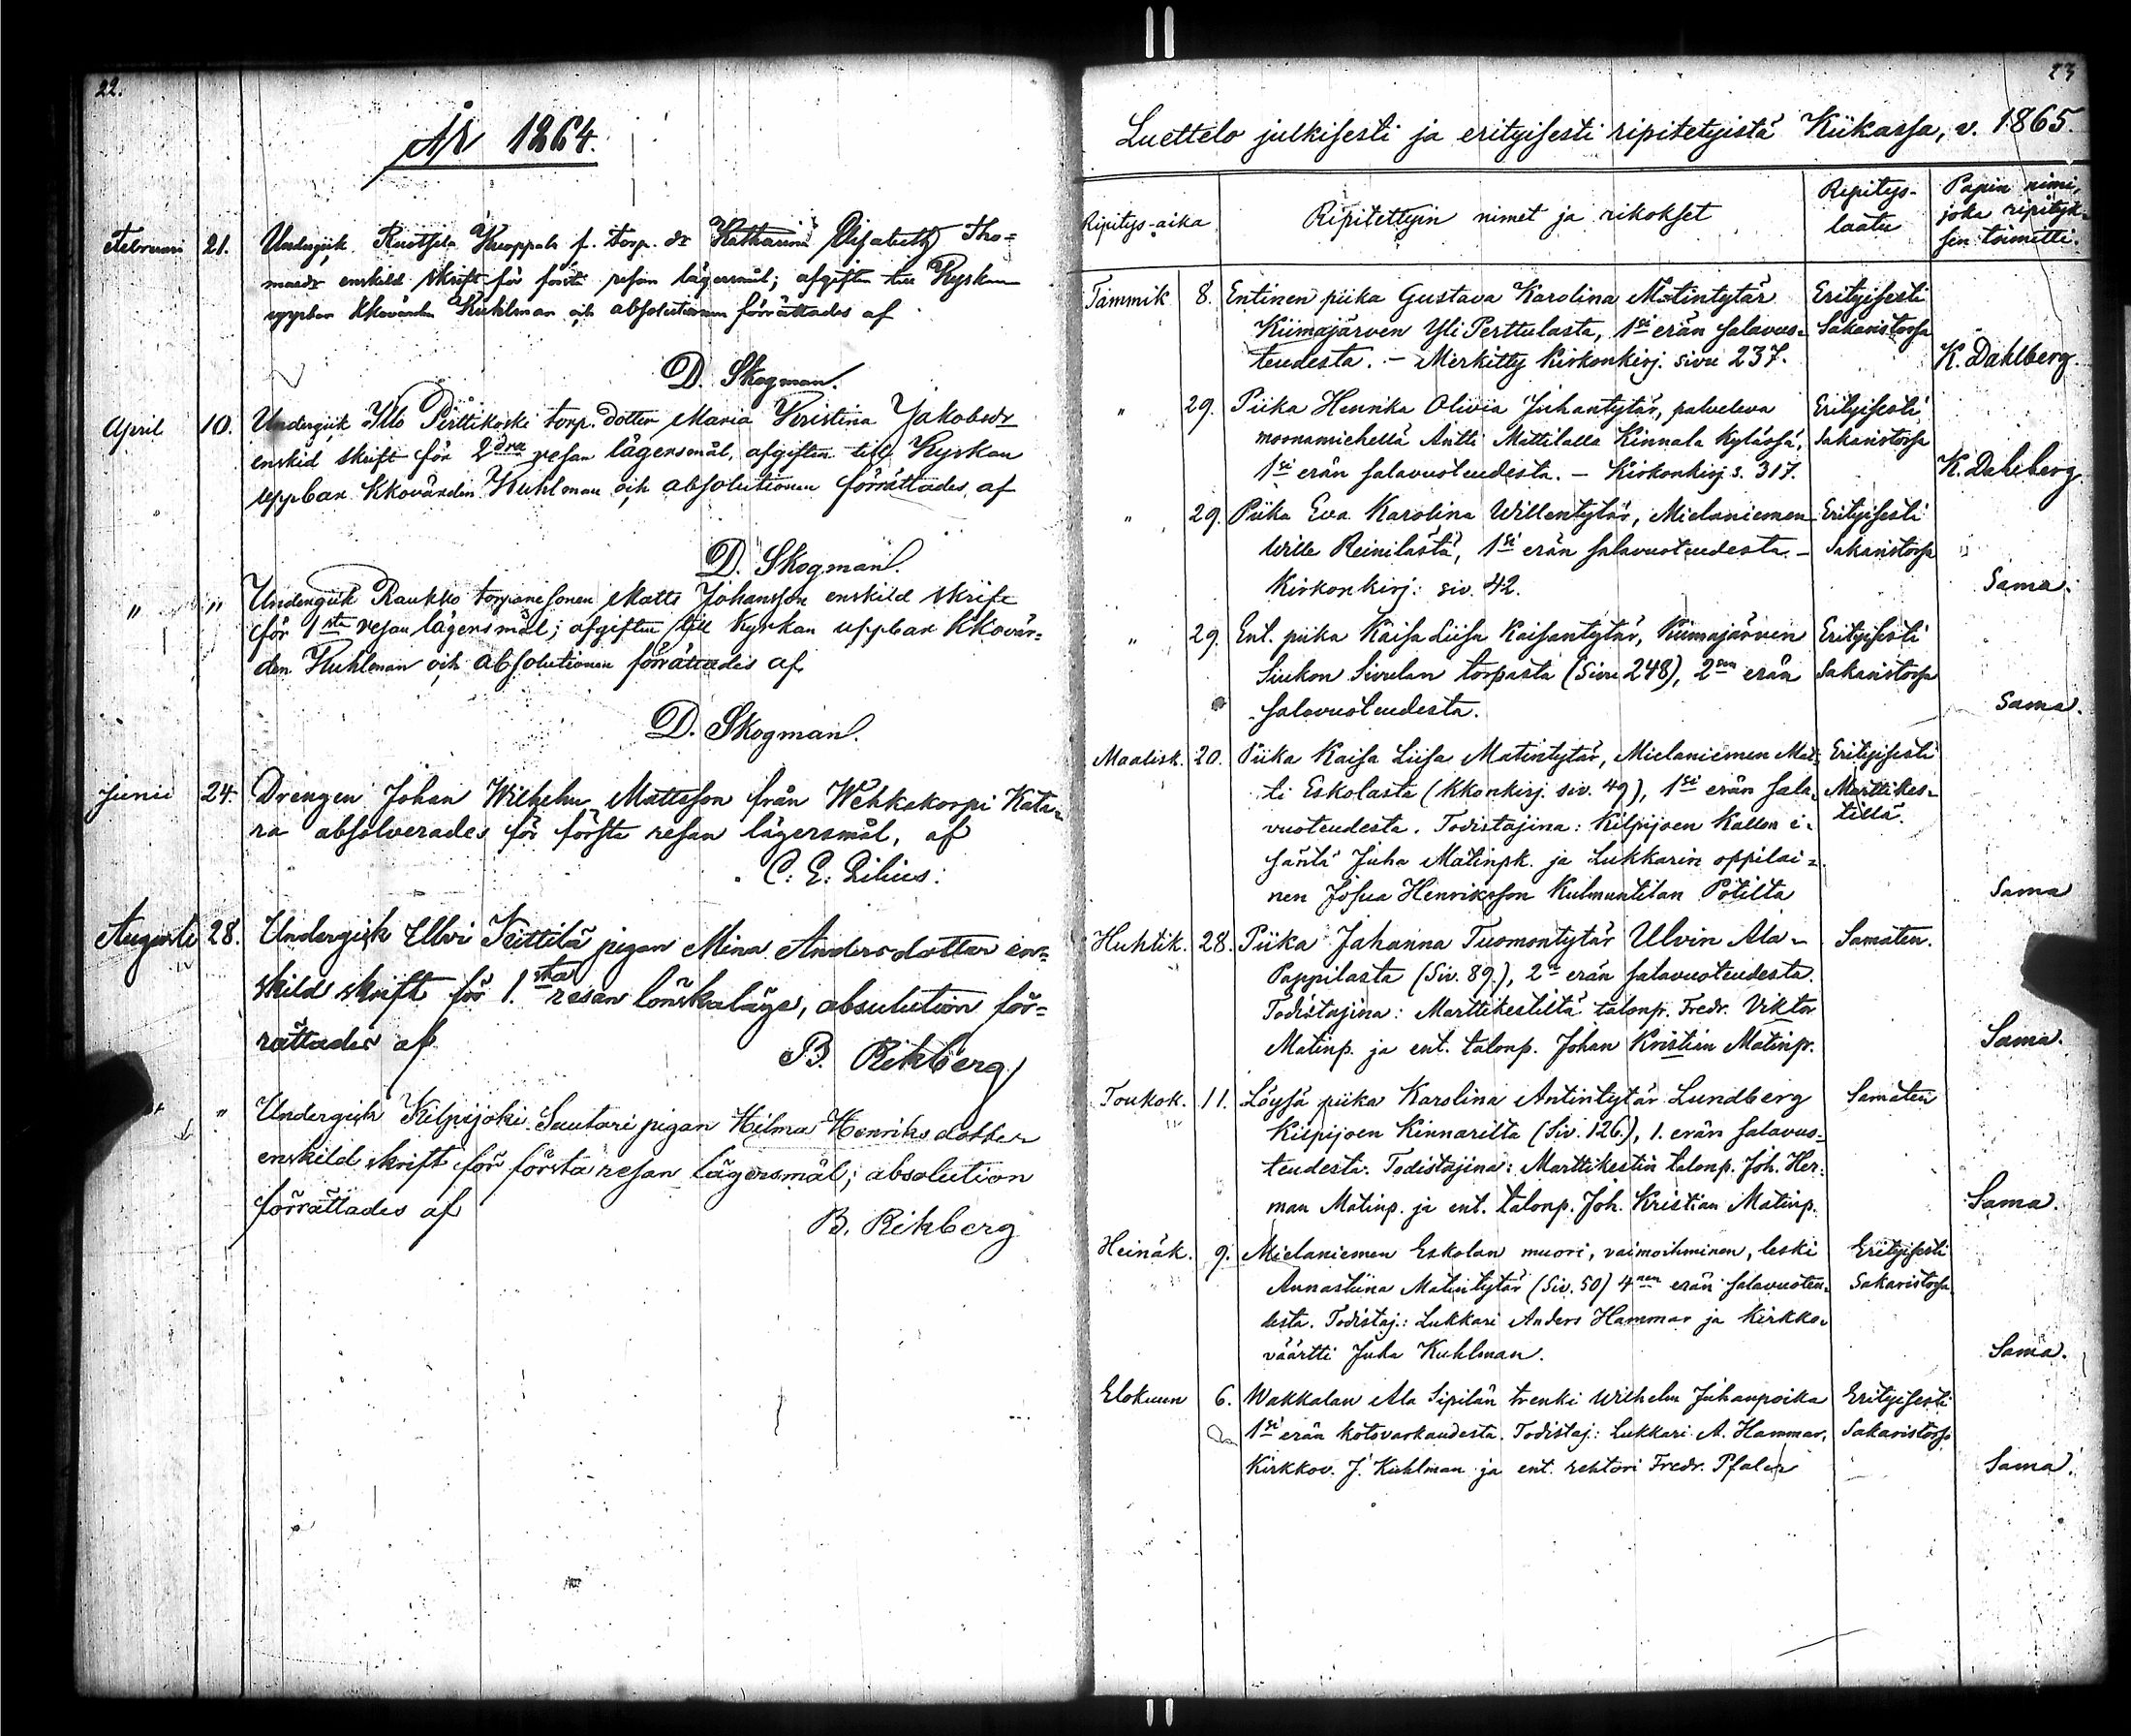 22.
År 1864.
Februari 21. Undergick Ruotsila Kuoppala f. torp. dr Katharina Elisabeth Tho=
masdr enskild skrift för första resan lägersmål; afgiften till Kyrkan
uppbar Kkovärden Kuhlman och absolutionen förrättades af
D. Skogman.
April 10. Undergick Illo Perttikoski torp. dotter Maria Kristina Jakobsdr
enskid skrift för 2dra resan lägersmål, afgiften till Kyrkan
uppbar Kkovärden Kuhlman och absolutionen förrättades af
D. Skogman.
" " Undergick Raukko torparesonen Matts Johansson enskild skrift
för 1sta resan lägersmål; afgiften till Kyrkan uppbar Kkovär=
den Kuhlman och absolutionen förrättades af
D. Skogman.
Junii 24. Drengen Johan Wilhelm Mattsson från Wehkakorpi Kata=
ra absolverades för första resan lägersmål, af
C. E. Gilius.
Augusti 28. Undergick Ellvi Kittilä pigan Mina Andersdotter en=
skild skrift för 1.sta resan lönskaläge, absulution för=
rättades af
B. Rikberg
" Undergick Kilpijoki Suutari pigan Hilma Henriksdotter
enskild skrift för första resan lägersmål; absolution
förrättades af
B. Rikberg
23
Luettelo julkisesti ja erityisesti ripitetyistä Kiikassa, v. 1865.
Ripitys-aika
Ripitettyin nimet ja rikokset
Ripitys-
laatu
Papin nimi,
joka ripityk-
sen toimitti.
Tammik 8. Entinen piika Gustava Karolina Matintytär Erityisesti
Kiimajärven Yli Perttulasta, 1si erän salavuo- Sakaristossa
teudesta. - Merkitty Kirkonkirj. sivu 237. K. Dahlberg.
" 29. Piika Henrika Olivia Juhantytär, palveleva Erityisesti
moonamiehellä Antti Mattilalla Kinnala kylässä, Sakaristossa
1si erän salavuoteudesta. - Kirkonkirj s. 317. K. Dahlberg
" 29. Piika Eva Karolina Willentytär, Mielaniemen Erityisesti
Wille Reinilästä, 1si erän salavuoteudesta. - Sakaristossa
Kirkonkirj: siv. 42. Sama.
" 29. Ent. piika Kaisa Liisa Kaisantytär, Kiimajärven Erityisesti
Siukon Sivulan torpasta (Sivu 248), 2sen erän Sakaristossa
salavuoteudesta. Sama.
Maalisk. 20. Piika Kaisa Liisa Matintytär, Mielaniemen Mat- Erityisesti
ti Eskolasta (Kkonkirj. siv. 49), 1si erän sala- Marttikes-
vuoteudesta. Todistajina: Kilpijoen Kallon i- tillä.
säntä Juha Matinpk. ja Lukkarin oppilai=
nen Josua Henriksson Kulmuntilan Potilta Sama
Huhtik. 28. Piika Johanna Tuomontytär Ulvin Ala- Samaten.
Pappilasta (Siv. 89.), 2n erän salavuoteudesta.
Todistajina: Marttikestiltä talonp. Fredr. Viktor
Matinp. ja ent. talonp. Johan Kristian Matinp. Sama.
Toukok. 11. Löysä piika Karolina Antintytär Lundberg Samaten
Kilpijoen Kinnarilta (Siv. 126.), 1. erän salavuo=
teudesta. Todistajina: Marttikestin talonp. Joh. Her-
man Matinp. ja ent. talonp. Joh. Kristian Matinp. Sama.
Heinäk. 9. Mielaniemen Eskolan muori, vaimoihminen, leski Erityisesti
Annastiina Matintytär (Siv. 50) 4nen erän salavuoteu- Sakaristossa
desta. Todistaj.: Lukkari Anders Hammar ja Kirkko-
väärtti Juha Kuhlman. Sama.
Elokuun 6. Wakkalan Ala Sipilän trenki Wilhelm Juhanpoika Erityisesti
1si erän kotovarkaudesta. Todistaj.: Lukkari A. Hammar, Sakaristossa
Kirkkov. J. Kuhlman ja ent. rehtori Fredr. Pfaler Sama.